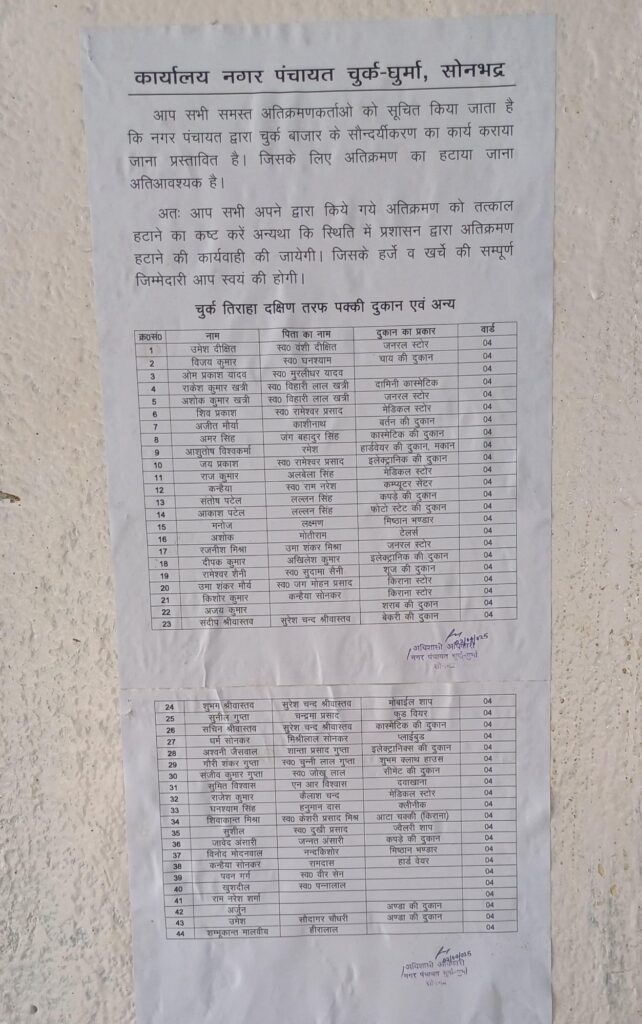 कार्यालय नगर पंचायत चुर्क-घुर्मा, सोनभद्र
आप सभी समस्त अतिक्रमणकर्ताओ को सूचित किया जाता है
कि नगर पंचायत द्वारा चुर्क बाजार के सौन्दर्यीकरण का कार्य कराया
जाना प्रस्तावित है। जिसके लिए अतिक्रमण का हटाया जाना
अतिआवश्यक है।
अतः आप सभी अपने द्वारा किये गये अतिक्रमण को तत्काल
हटाने का कष्ट करें अन्यथा कि स्थिति में प्रशासन द्वारा अतिक्रमण
हटाने की कार्यवाही की जायेगी। जिसके हर्जे व खर्चे की सम्पूर्ण
जिम्मेदारी आप स्वयं की होगी।
चुर्क तिराहा दक्षिण तरफ पक्की दुकान एवं अन्य
क्र०सं० नाम पिता का नाम दुकान का प्रकार वार्ड
1 उमेश दीक्षित स्व० वंशी दीक्षित जनरल स्टोर 04
2 विजय कुमार स्व० घनश्याम चाय की दुकान 04
3 ओम प्रकाश यादव स्व० मुरलीधर यादव 04
4 राकेश कुमार खत्री स्व० विहारी लाल खत्री दामिनी कास्मेटिक 04
5 अशोक कुमार खत्री स्व० विहारी लाल खत्री जनरल स्टोर 04
6 शिव प्रकाश स्व० रामेश्वर प्रसाद मेडिकल स्टोर 04
7 अजीत मौर्या काशीनाथ बर्तन की दुकान 04
8 अमर सिंह जंग बहादुर सिंह कास्मेटिक की दुकान 04
9 आशुतोष विश्वकर्मा रमेश हार्डवेयर की दुकान, मकान 04
10 जय प्रकाश स्व० रामेश्वर प्रसाद इलेक्ट्रानिक की दुकान 04
11 राज कुमार अलबेला सिंह मेडिकल स्टोर 04
12 कन्हैया स्व० राम नरेश कम्प्यूटर सेंटर 04
13 संतोष पटेल लल्लन सिंह कपड़े की दुकान 04
14 आकाश पटेल लल्लन सिंह फोटो स्टेट की दुकान 04
15 मनोज लक्ष्मण मिष्ठान भण्डार 04
16 अशोक मोतीराम टेलर्स 04
17 रजनीश मिश्रा उमा शंकर मिश्रा जनरल स्टोर 04
18 दीपक कुमार अखिलेश कुमार इलेक्ट्रानिक की दुकान 04
19 रामेश्वर शैनी स्व० सुदामा सैनी शूज की दुकान 04
20 उमा शंकर मौर्य स्व० जग मोहन प्रसाद किराना स्टोर 04
21 किशोर कुमार कन्हैया सोनकर किराना स्टोर 04
22 अजय कुमार शराब की दुकान 04
23 संदीप श्रीवास्तव सुरेश चन्द श्रीवास्तव बेकरी की दुकान 04
अधिशासी अधिकारी
नगर पंचायत चुर्क-घुर्मा
सोनभद्र
24 शुभम श्रीवास्तव सुरेश चन्द श्रीवास्तव मोबाईल शाप 04
25 सुनील गुप्ता चन्द्रमा प्रसाद फुड वियर 04
26 सचिन श्रीवास्तव सुरेश चन्द श्रीवास्तव कास्मेटिक की दुकान 04
27 धर्म सोनकर मिश्रीलाल सोनकर प्लाईवुड 04
28 अश्वनी जेसवाल शान्ता प्रसाद गुप्ता इलेक्ट्रानिक्स की दुकान 04
29 गौरी शंकर गुप्ता स्व० चुन्नी लाल गुप्ता शुभम क्लाथ हाउस 04
30 संजीव कुमार गुप्ता स्व० जोखू लाल सीमेंट की दुकान 04
31 सुमित विश्वास एन आर विश्वास दवाखाना 04
32 राजेश कुमार कैलाश चन्द मेडिकल स्टोर 04
33 घनश्याम सिंह हनुमान दास क्लीनीक 04
34 शिवाकान्त मिश्रा स्व० केशरी प्रसाद मिश्र आटा चक्की (किराना) 04
35 सुशील स्व० दुखी प्रसाद ज्वेलरी शाप 04
36 जावेद अंसारी जन्नत अंसारी कपड़े की दुकान 04
37 विनोद मोदनवाल नन्दकिशोर मिष्ठान भण्डार 04
38 कन्हैया सोनकर रामदास हार्ड वेयर 04
39 पवन गर्ग स्व० वीर सेन 04
40 खुशदील स्व० पन्नालाल 04
41 राम नरेश शर्मा 04
42 अर्जुन अण्डा की दुकान 04
43 उमेश सोदागर चौधरी अण्डा की दुकान 04
44 शम्भूकान्त मालवीय हीरालाल 04
अधिशासी अधिकारी
नगर पंचायत चुर्क-घुर्मा
सोनभद्र